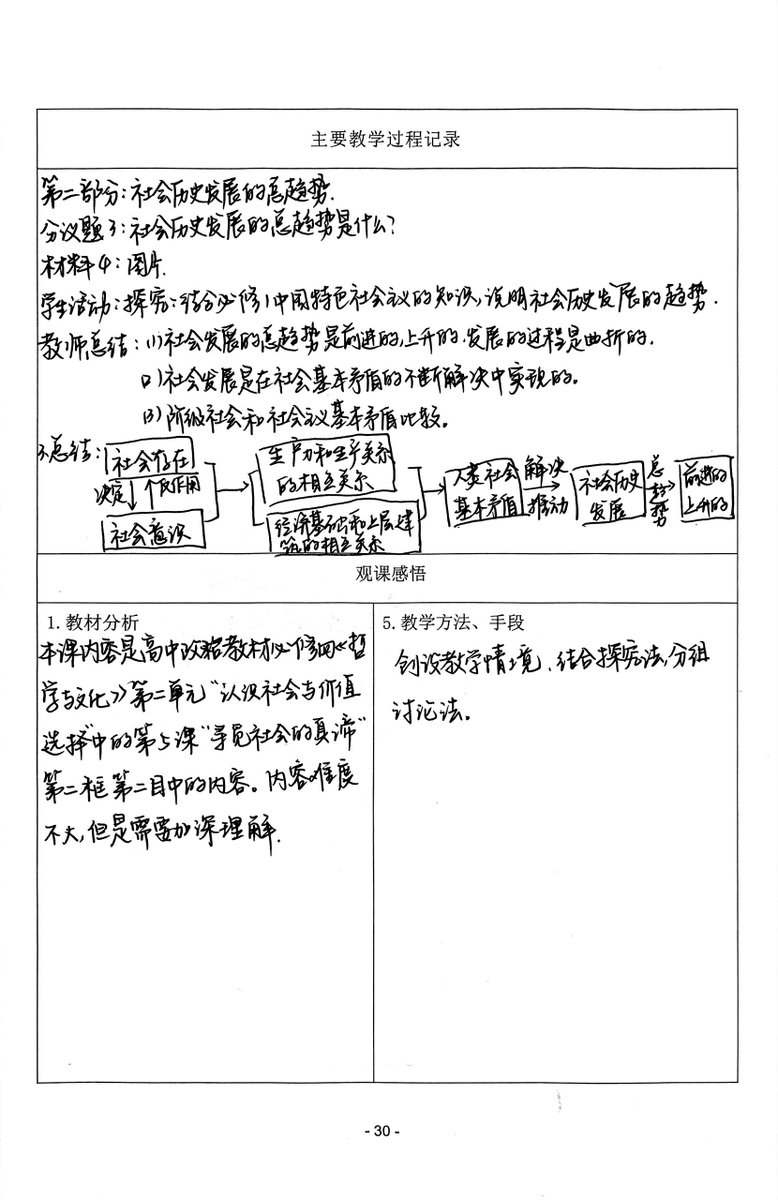 主要教学过程记录
第二部分:社会历史发展的总趋势.
分议题3:社会历史发展的总趋势是什么?
材料4:图片.
学生活动:探究:结合必修1中国特色社会主义的知识,说明社会历史发展的趋势.
教师总结:(1)社会发展的总趋势是前进的,上升的.发展的过程是曲折的.
(2)社会发展是在社会基本矛盾的不断解决中实现的。
(3)阶级社会和社会主义基本矛盾比较。
3.总结:
社会存在
决定 反作用
社会意识
生产力和生产关系
的相互关系
经济基础和上层建
筑的相互关系
人类社会
基本矛盾
解决
推动
社会历史
发展
总趋势
前进的
上升的
观课感悟
1. 教材分析
本课内容是高中政治教材必修四《哲
学与文化》第二单元“认识社会与价值
选择”中的第5课“寻觅社会的真谛”
第二框第二目中的内容。内容难度
不大,但是需要加深理解.
5. 教学方法、手段
创设教学情境、结合探究法,分组
讨论法。
- 30 -